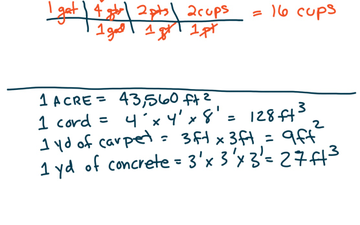 1 gal | 4 qts | 2 pts | 2 cups = 16 cups
1 gal | 1 qt | 1 pt
1 ACRE = 43,560 ft²
1 cord = 4' x 4' x 8' = 128 ft³
1 yd of carpet = 3ft x 3ft = 9ft²
1 yd of concrete = 3' x 3' x 3' = 27 ft³